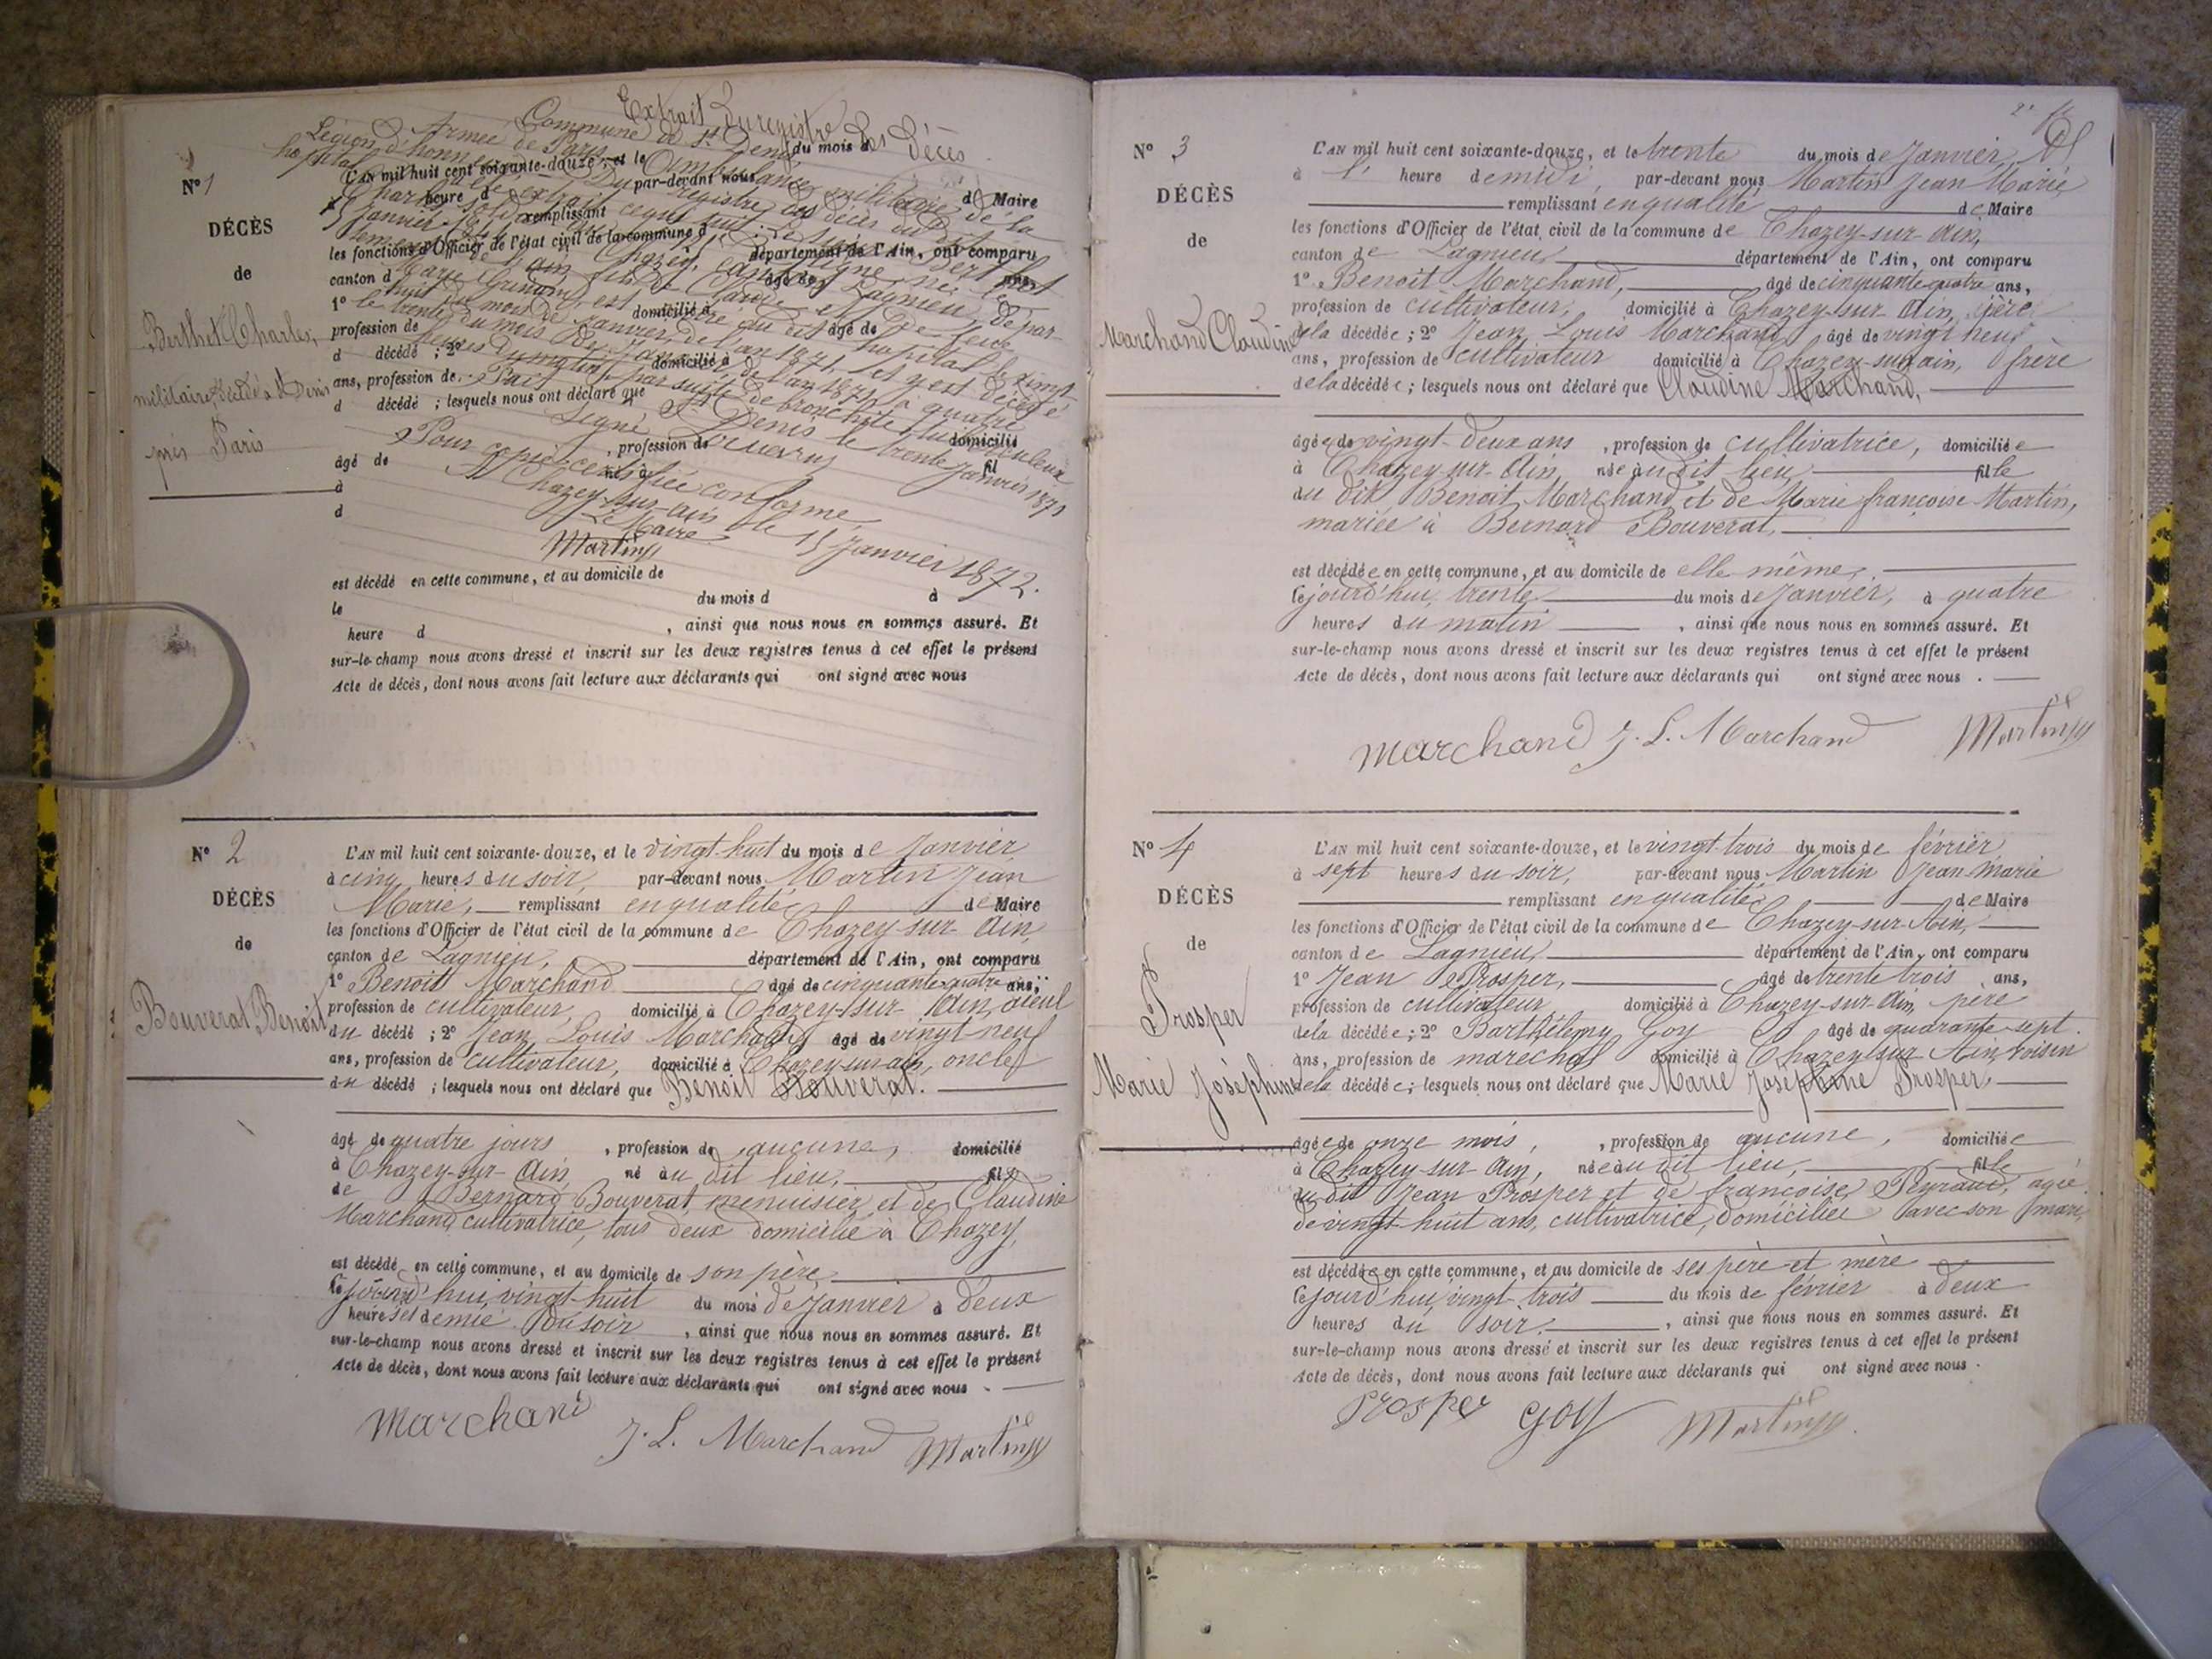 Extrait du registre des Décès
Commune de St Denis
Armée de Paris
Légion d'honneur
hopital
Ambulance militaire de la
N° 1
L'AN mil huit cent soixante-douze, et le
du mois d
heure d
par-devant nous
d Maire
remplissant
DÉCÈS
les fonctions d'Officier de l'état civil de la commune d
de
canton d
département de l'Ain, ont comparu
Berthet Charles,
militaire décédé à St Denis
près Paris
1°
âgé de
ans,
profession de
domicilié à
d décédé ; 2°
âgé de
ans, profession de
domicilié à
d décédé ; lesquels nous ont déclaré que
par suite de bronchite
Fait à St Denis le trente janvier 1871
Signé
âgé de , profession de domicilié
à né à fil
d
Pour copie certifiée conforme
A Chazey-sur-Ain le 15 Janvier 1872.
Le Maire
Martin
est décédé en cette commune, et au domicile de
le du mois d à
heure d , ainsi que nous nous en sommes assuré. Et
sur-le-champ nous avons dressé et inscrit sur les deux registres tenus à cet effet le présent
Acte de décès, dont nous avons fait lecture aux déclarants qui ont signé avec nous
N° 2
DÉCÈS
de
Bouverat Benoit
L'AN mil huit cent soixante-douze, et le vingt-huit du mois de Janvier
à cinq heures du soir, par-devant nous Martin Jean
Marie, remplissant en qualité de Maire
les fonctions d'Officier de l'état civil de la commune de Chazey-sur-Ain,
canton de Lagnieu, département de l'Ain, ont comparu
1° Benoit Marchand âgé de cinquante quatre ans,
profession de cultivateur, domicilié à Chazey-sur-Ain, aïeul
du décédé ; 2° Jean Louis Marchand, âgé de vingt neuf
ans, profession de cultivateur, domicilié à Chazey-sur-ain, oncle
du décédé ; lesquels nous ont déclaré que Benoit Bouverat.
âgé de quatre jours , profession de aucune, domicilié
à Chazey-sur-Ain, né au dit lieu, fils
de Bernard Bouverat, menuisier et de Claudine
Marchand, cultivatrice, tous deux domicilié à Chazey,
est décédé en cette commune, et au domicile de son père
le jourd'hui, vingt-huit du mois de Janvier à deux
heures et demie du soir , ainsi que nous nous en sommes assuré. Et
sur-le-champ nous avons dressé et inscrit sur les deux registres tenus à cet effet le présent
Acte de décès, dont nous avons fait lecture aux déclarants qui ont signé avec nous .
Marchand
J. L. Marchand Martin
N° 3
DÉCÈS
de
Marchand Claudine
L'AN mil huit cent soixante-douze, et le trente du mois de Janvier,
à l' heure de midi, par-devant nous Martin Jean Marie,
remplissant en qualité de Maire
les fonctions d'Officier de l'état civil de la commune de Chazey-sur-Ain,
canton de Lagnieu département de l'Ain, ont comparu
1° Benoit Marchand, âgé de cinquante quatre ans,
profession de cultivateur, domicilié à Chazey-sur-Ain, père
de la décédée ; 2° Jean Louis Marchand, âgé de vingt neuf
ans, profession de cultivateur domicilié à Chazey-sur-ain, frère
de la décédée ; lesquels nous ont déclaré que Claudine Marchand,
âgée de vingt-deux ans , profession de cultivatrice, domiciliée
à Chazey-sur-Ain, née au dit lieu, fille
du dit Benoit Marchand et de Marie françoise Martin,
mariée à Bernard Bouverat,
est décédée en cette commune, et au domicile de elle même,
le jourd'hui, trente du mois de Janvier, à quatre
heures du matin , ainsi que nous nous en sommes assuré. Et
sur-le-champ nous avons dressé et inscrit sur les deux registres tenus à cet effet le présent
Acte de décès, dont nous avons fait lecture aux déclarants qui ont signé avec nous .
Marchand J. L. Marchand Martin
N° 4
DÉCÈS
de
Prosper
Marie Joséphine
L'AN mil huit cent soixante-douze, et le vingt-trois du mois de février
à sept heures du soir, par-devant nous Martin Jean Marie
remplissant en qualité de Maire
les fonctions d'Officier de l'état civil de la commune de Chazey-sur-Ain,
canton de Lagnieu, département de l'Ain, ont comparu
1° Jean Prosper, âgé de trente trois ans,
profession de cultivateur domicilié à Chazey-sur-Ain, père
de la décédée ; 2° Barthélemy Goy âgé de quarante-sept.
ans, profession de maréchal domicilié à Chazey-sur-Ain, voisin
de la décédée ; lesquels nous ont déclaré que Marie Joséphine Prosper,
âgée de onze mois, , profession de aucune, domiciliée
à Chazey-sur-Ain, née au dit lieu, fille
du dit Jean Prosper et de françoise Peyraud, agée
de vingt-huit ans, cultivatrice, domiciliée avec son mari,
est décédée en cette commune, et au domicile de ses père et mère
le jourd'hui, vingt-trois du mois de février à deux
heures du soir. , ainsi que nous nous en sommes assuré. Et
sur-le-champ nous avons dressé et inscrit sur les deux registres tenus à cet effet le présent
Acte de décès, dont nous avons fait lecture aux déclarants qui ont signé avec nous .
Prosper Goy Martin